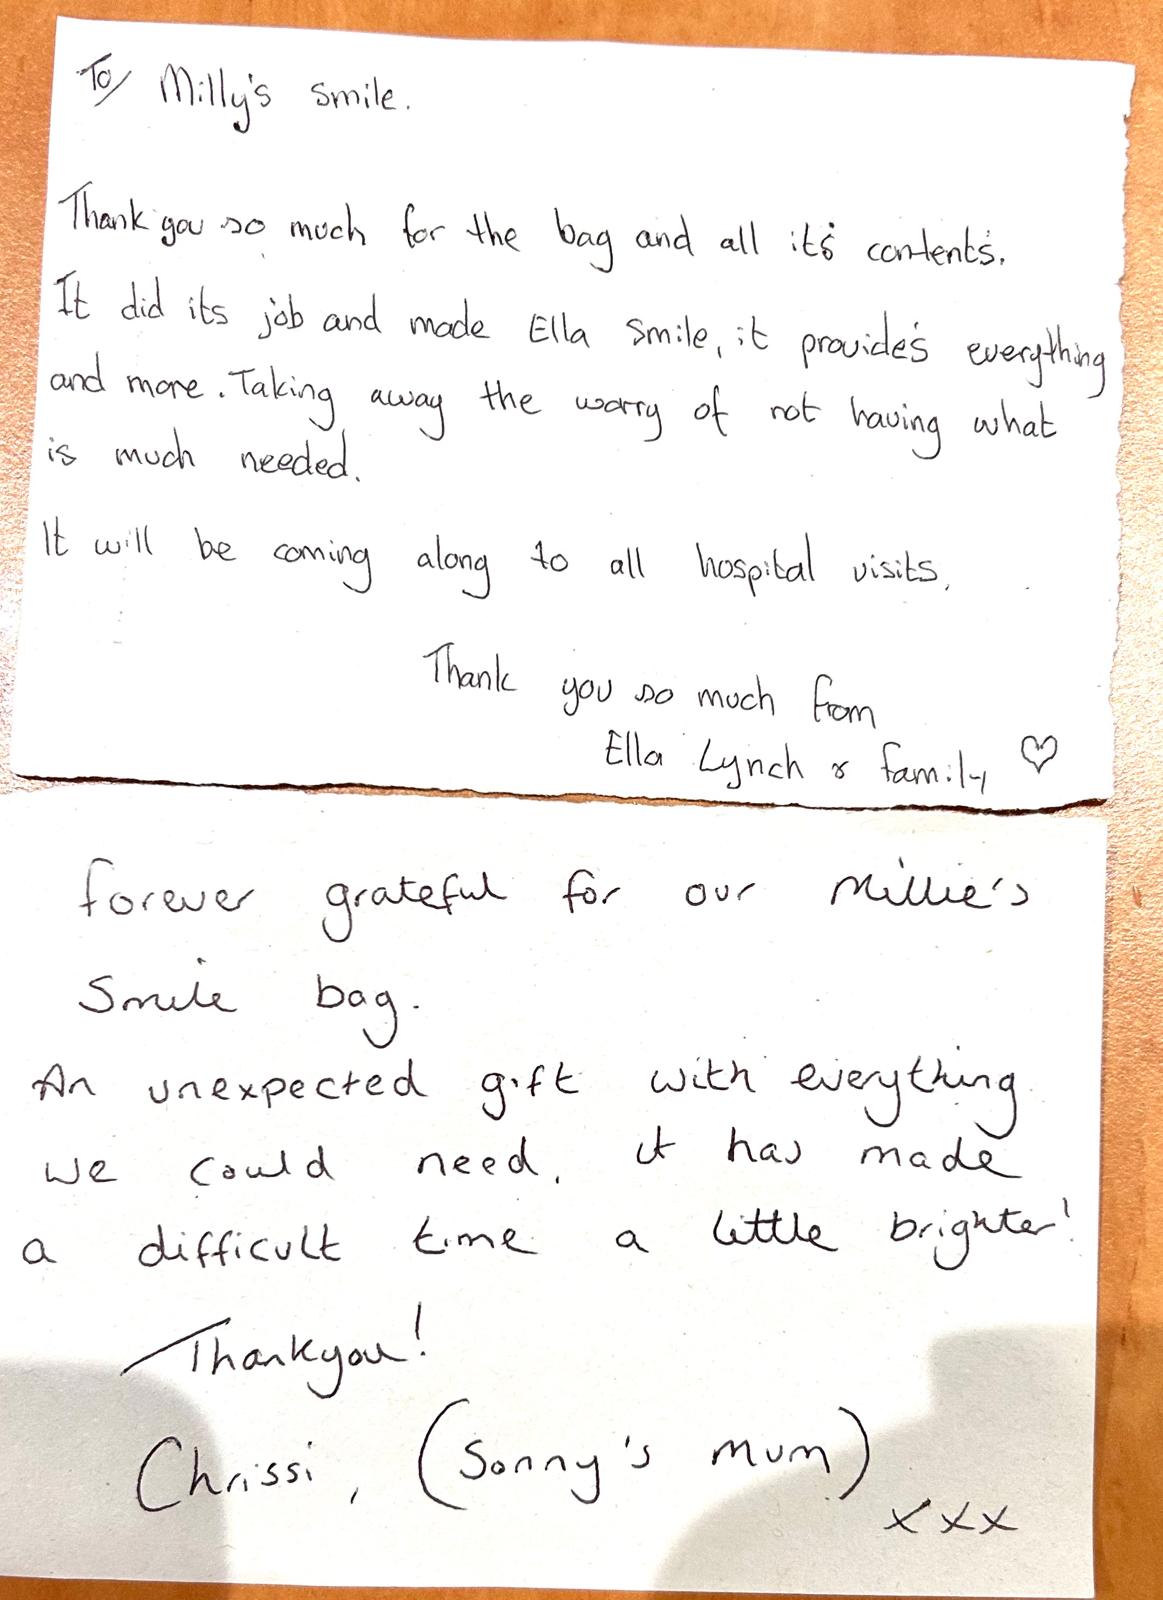 To Milly's smile.
Thank you so much for the bag and all it's contents.
It did its job and made Ella smile, it provides everything
and more. Taking away the worry of not having what
is much needed.
It will be coming along to all hospital visits.
Thank you so much from
Ella Lynch & family ♡
forever grateful for our Millie's
Smile bag.
An unexpected gift with everything
we could need, it has made
a difficult time a little brighter!
Thankyou!
Chrissi, (Sonny's mum)
xxx